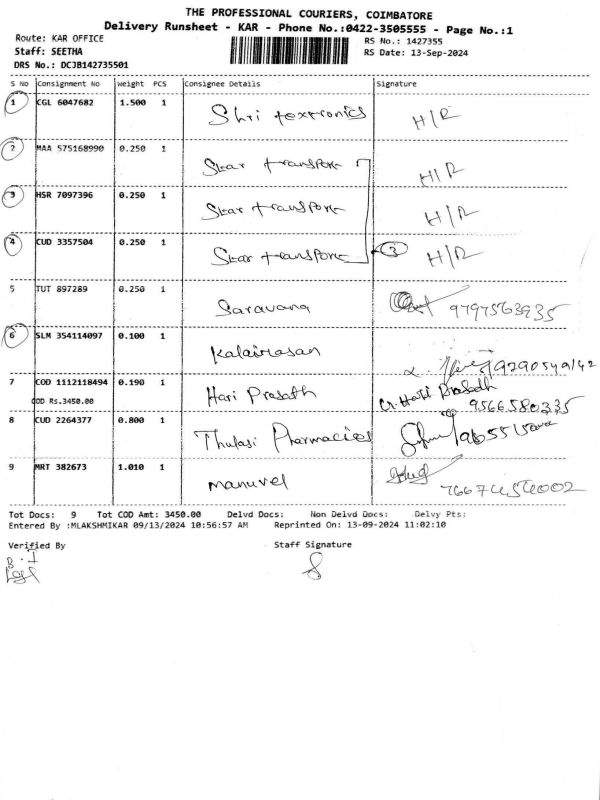 THE PROFESSIONAL COURIERS, COIMBATORE
Delivery Runsheet - KAR - Phone No.:0422-3505555 - Page No.:1
Route: KAR OFFICE RS No.: 1427355
Staff: SEETHA RS Date: 13-Sep-2024
DRS No.: DCJB142735501
S No Consignment No Weight PCS Consignee Details Signature
1 CGL 6047682 1.500 1 Shri textronics H/R
2 MAA 575168990 0.250 1 Star transport H/R
3 HSR 7097396 0.250 1 Star transport H/R
4 CUD 3357504 0.250 1 Star transport 3 H/R
5 TUT 897289 0.250 1 Saravana 9797563935
6 SLM 354114097 0.100 1 Kalairasan
7 COD 1112118494 0.190 1 Hari Prasath G. Hari Prasadh
COD Rs.3450.00 9566580335
8 CUD 2264377 0.800 1 Thulasi Pharmacies
9 MRT 382673 1.010 1 Manuvel
Tot Docs: 9 Tot COD Amt: 3450.00 Delvd Docs: Non Delvd Docs: Delvy Pts:
Entered By :MLAKSHMIKAR 09/13/2024 10:56:57 AM Reprinted On: 13-09-2024 11:02:10
Verified By Staff Signature